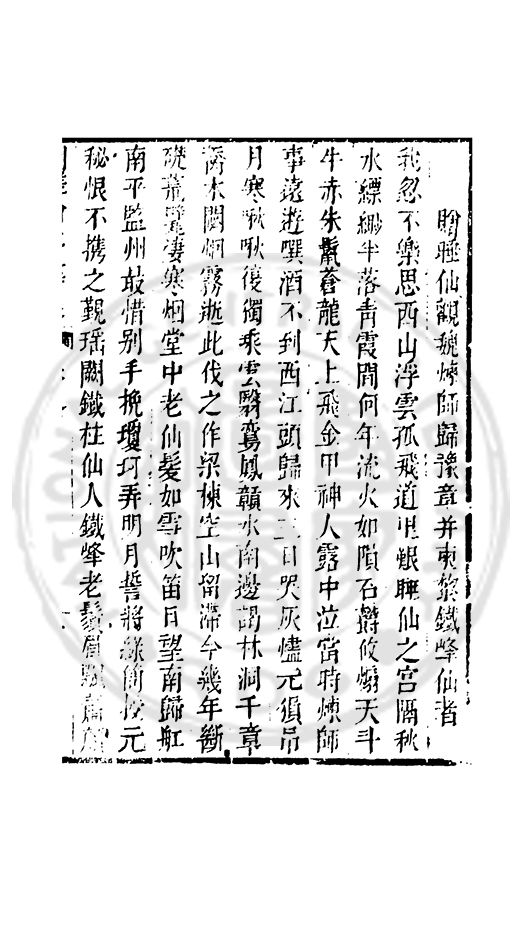 贈睡仙觀魏煉師歸豫章并柬黎鐵峰仙者
我忽不樂思西山浮雲孤飛道里艱睡仙之宮隔秋
水縹緲半落青霞間何年流火如隕石欝攸煽天斗
牛赤朱鬣蒼龍天上飛金甲神人露中泣當時煉師
事遠遊噀酒不到西江頭歸來三日哭灰燼元猿吊
月寒啾啾復獨乘雲翳鸞鳳贑水南邊謁林洞千章
喬木閟烟霧逝此伐之作梁棟空山留滯今幾年斷
礎荒甃凄寒烟堂中老仙髮如雪吹笛日望南歸舡
南平監州敢惜别手挽瓊𤣥弄明月誓將綠簡授元
秘恨不携之覲瑶闕鐵柱仙人鐵峰老鬚眉